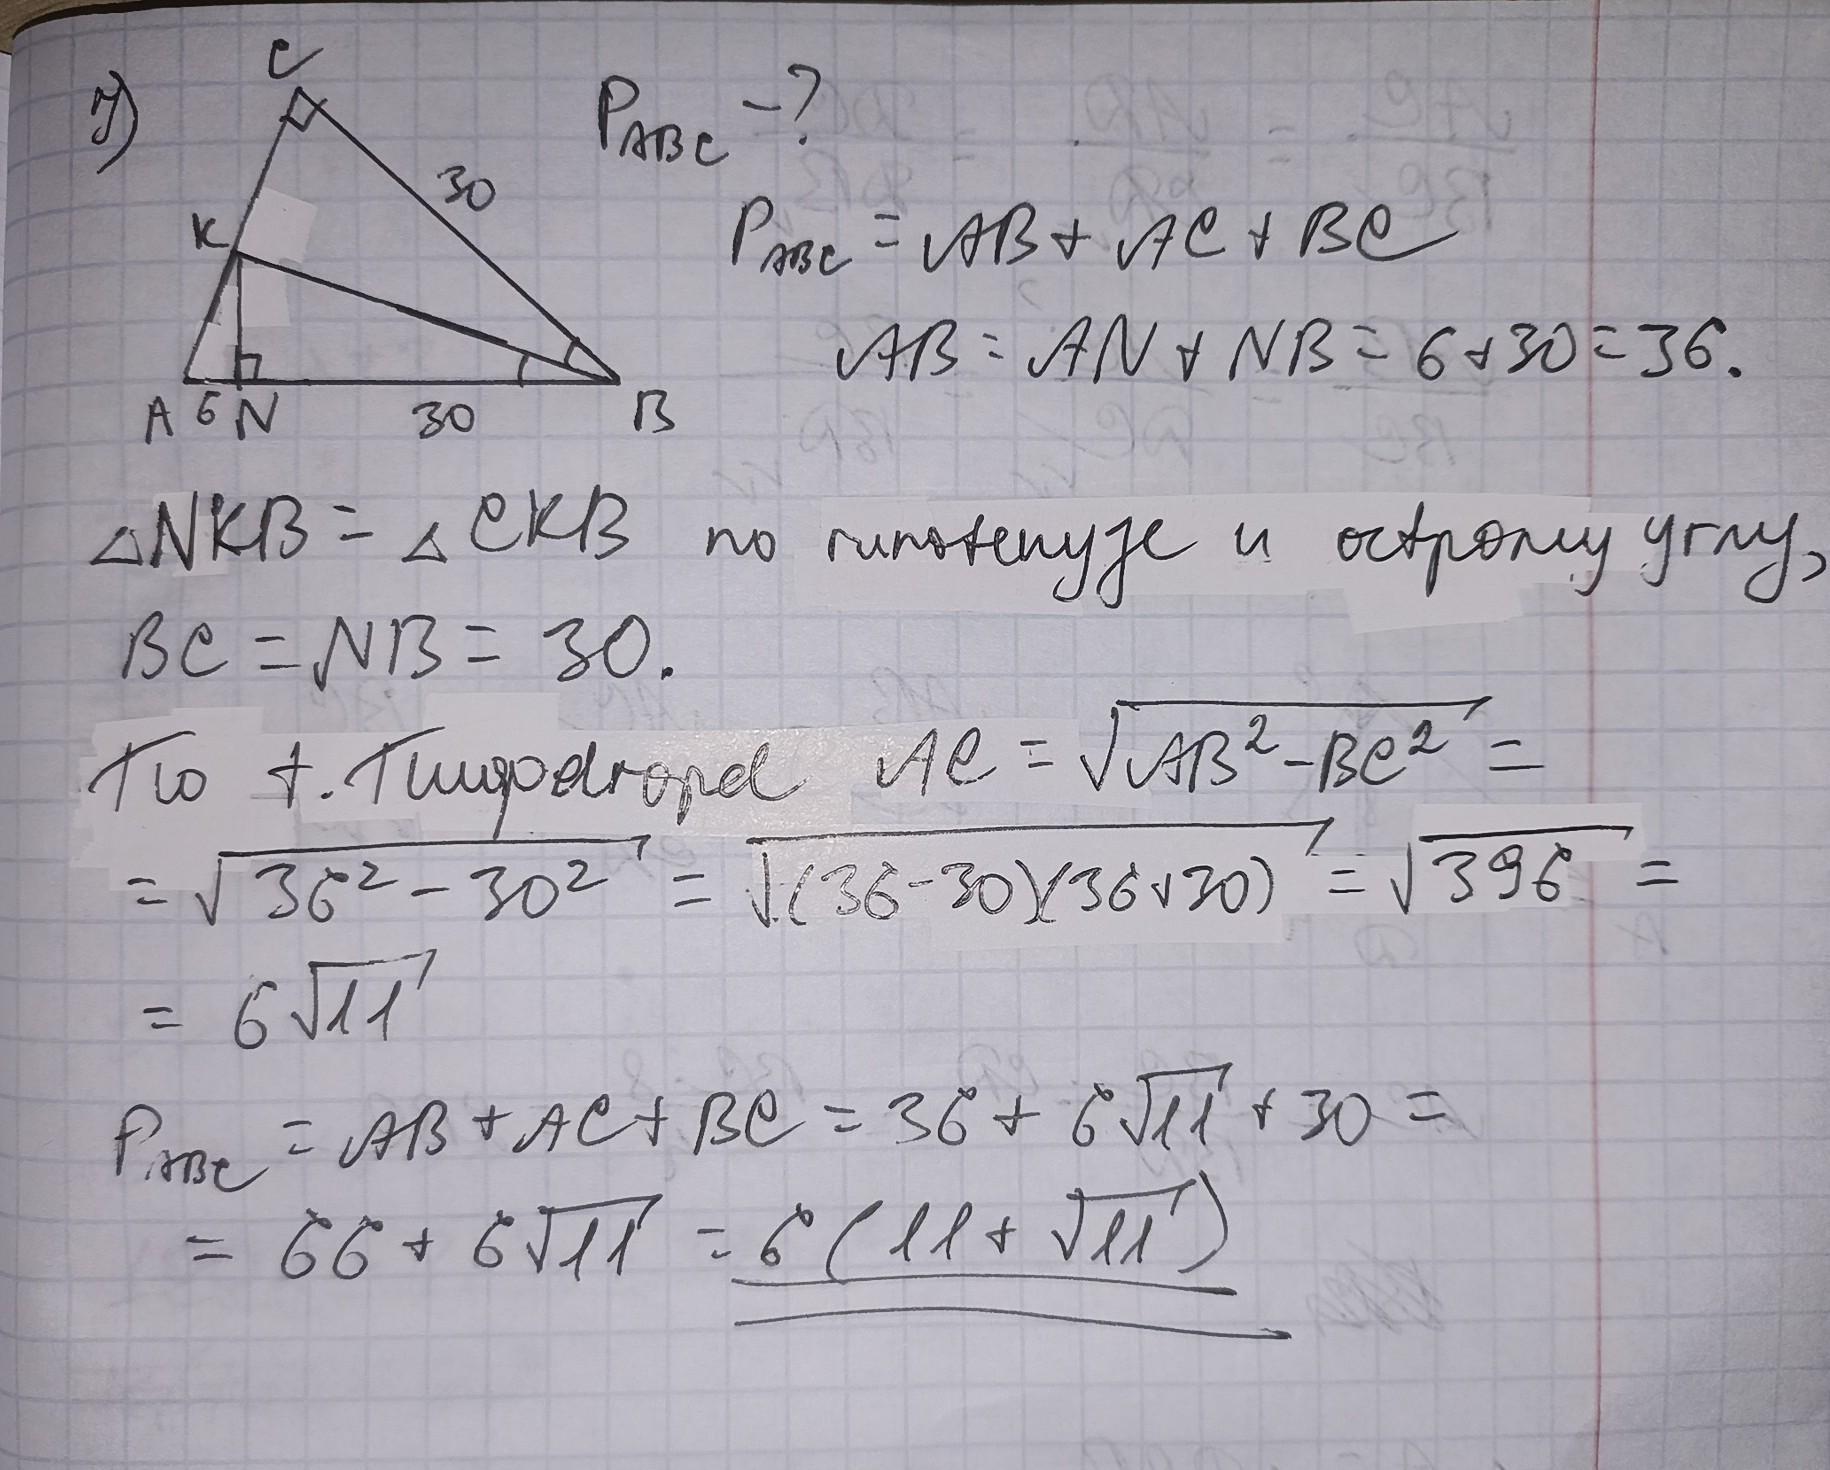 7)
C
30
K
A 6 N 30 B
P_ABC - ?
P_ABC = AB + AC + BC
AB = AN + NB = 6 + 30 = 36.
△NKB = △CKB по гипотенузе и острому углу,
BC = NB = 30.
По т. Пифагора AC = √(AB² - BC²) =
= √(36² - 30²) = √((36-30)(36+30)) = √396 =
= 6√11
P_ABC = AB + AC + BC = 36 + 6√11 + 30 =
= 66 + 6√11 = 6(11 + √11)